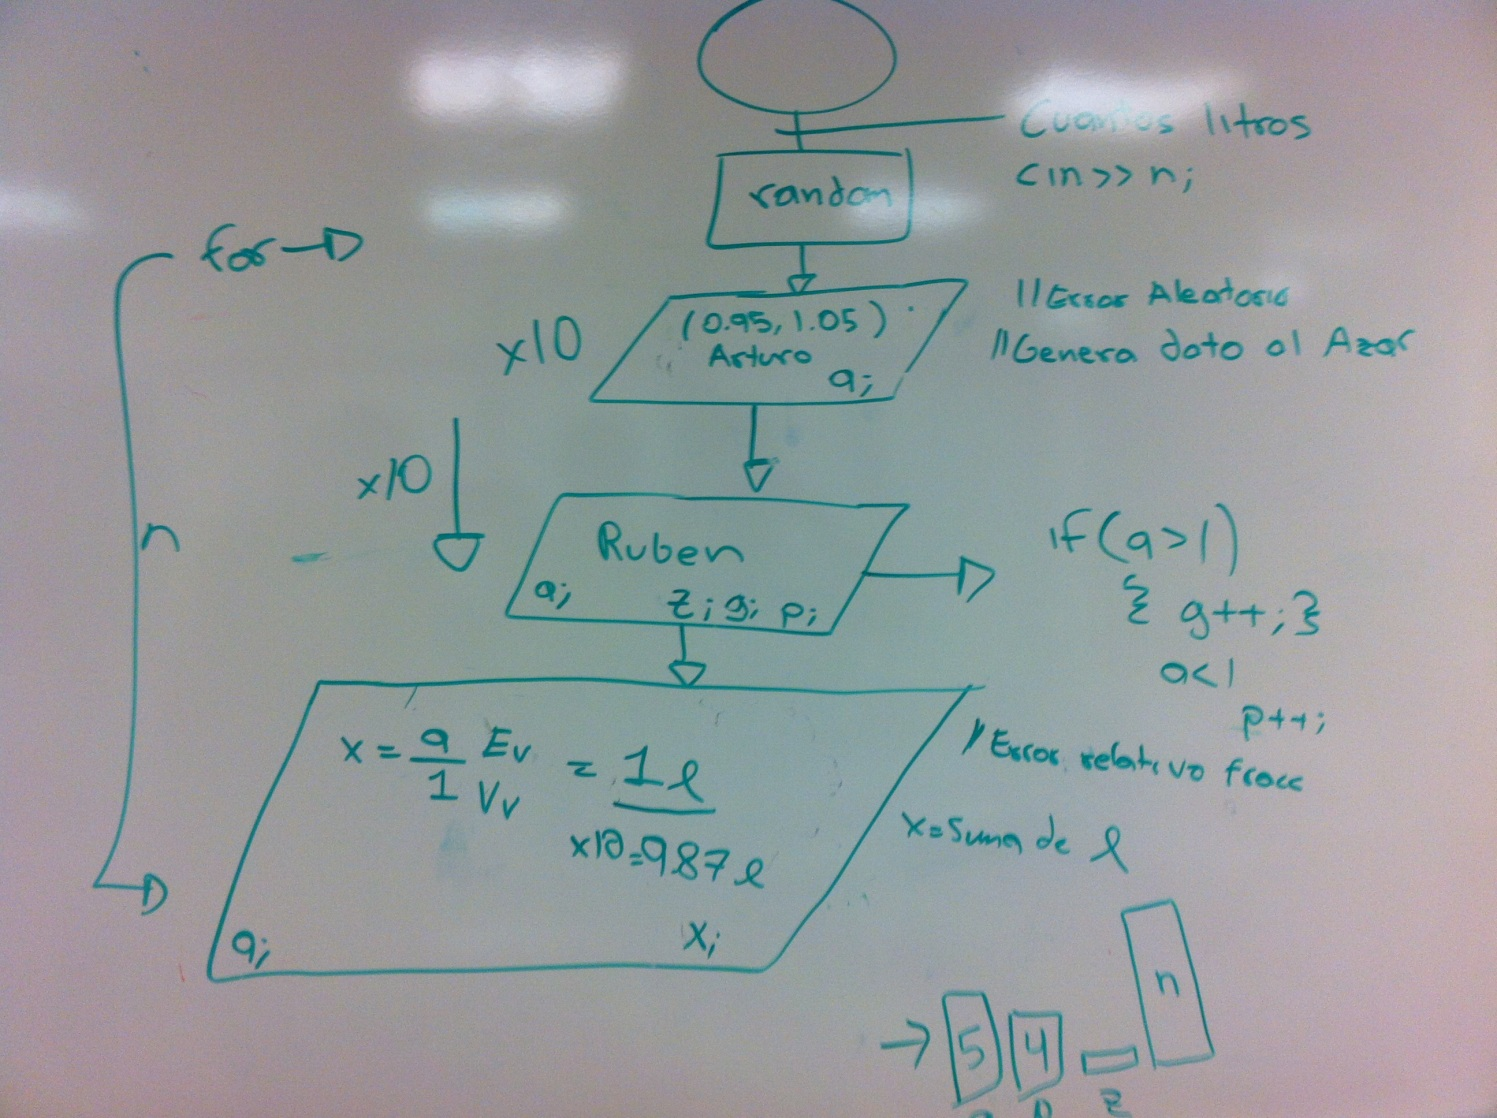 Cuantos litros
cin>> n;
random
for
(0.95, 1.05)
Arturo
a;
x10
//Error Aleatorio
//Genera dato al Azar
x10
n
Ruben
a; z; g; p;
if(a>1)
{ g++;}
a<1
p++;
x = a/1 Ev/Vv = 1l
x10=987l
a; x;
// Error relativo fracc
x=Suma de l
n
5 4
z